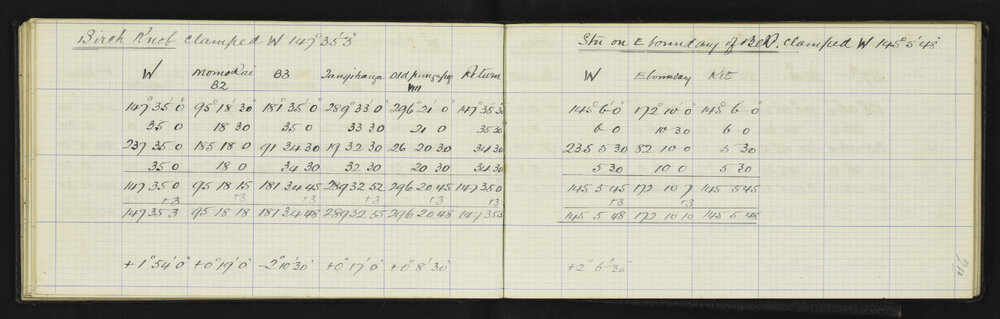 Birch Knob clamped W 147° 35' 3"
W Momokai B3 Tangihanga Old Return
B2 VII
147° 35' 0" 95° 18' 30" 181° 35' 0" 289° 33' 0" 296° 21' 0" 147° 35' 30"
35 0 18 30 35 0 33 30 21 0 35 30
237 35 0 185 18 0 91 34 30 19 32 30 26 20 30 34 30
35 0 18 0 34 30 32 30 20 30 34 30
147 35 0 95 18 15 181 34 45 289 32 52 296 20 45 147 35 0
+3 +3 +3 +3 +3
147 35 3 95 18 18 181 34 48 289 32 55 296 20 48 147 35 3
+1° 54' 0" +0° 19' 0" -2° 10' 30" +0° 17' 0" +0° 8' 30"
Stn on E boundary of clamped W 145° 5' 48"
W E boundary Ret
145° 6' 0" 172° 10' 0" 145° 6' 0"
6 0 10 30 6 0
235 5 30 82 10 0 5 30
5 30 10 0 5 30
145 5 45 172 10 7 145 5 45
+3 +3
145 5 48 172 10 10 145 5 48
+2° 6' 30"